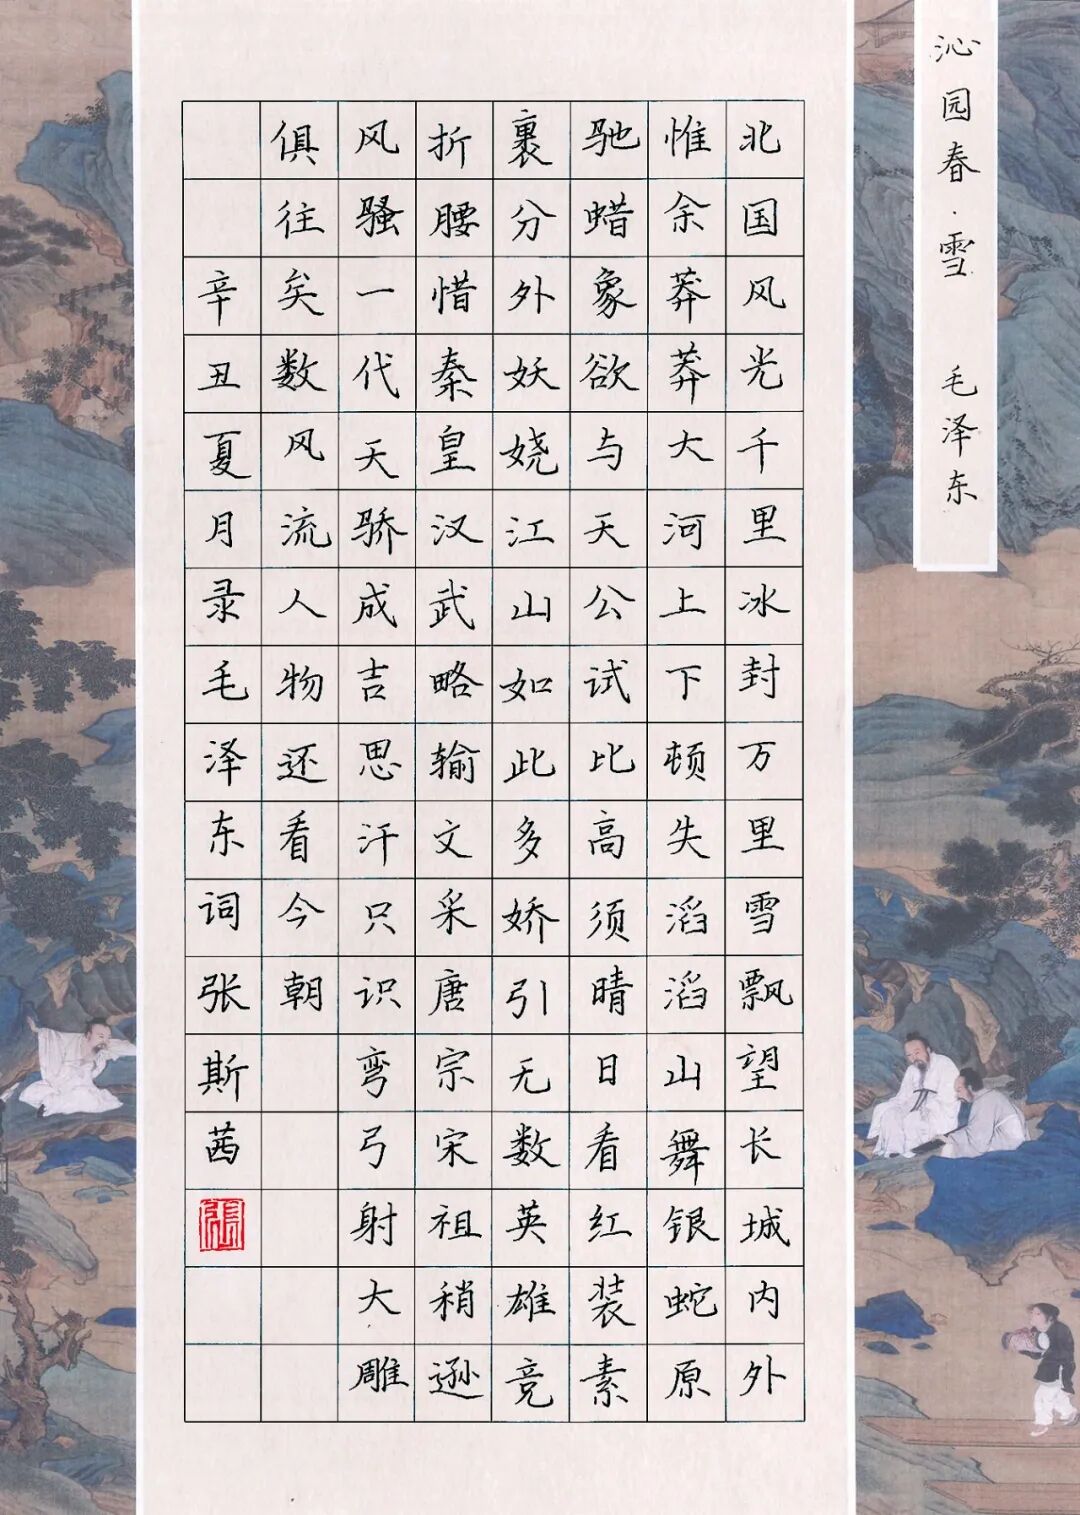 沁园春·雪 毛泽东
北国风光千里冰封万里雪飘望长城内外
惟余莽莽大河上下顿失滔滔山舞银蛇原
驰蜡象欲与天公试比高须晴日看红装素
裹分外妖娆江山如此多娇引无数英雄竞
折腰惜秦皇汉武略输文采唐宗宋祖稍逊
风骚一代天骄成吉思汗只识弯弓射大雕
俱往矣数风流人物还看今朝
辛丑夏月录毛泽东词张斯茜